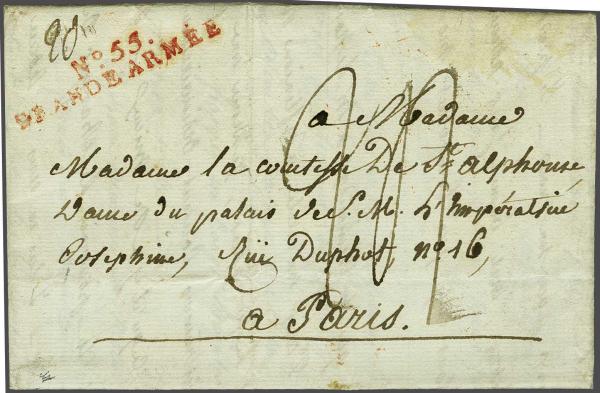 No. 55.
GRANDE ARMÉE
a Madame
Madame la comtesse De St. alphonse,
Dame du palais de S. M. L'Impératrice
Josephine, Rüe Duphot, no. 16,
a Paris.